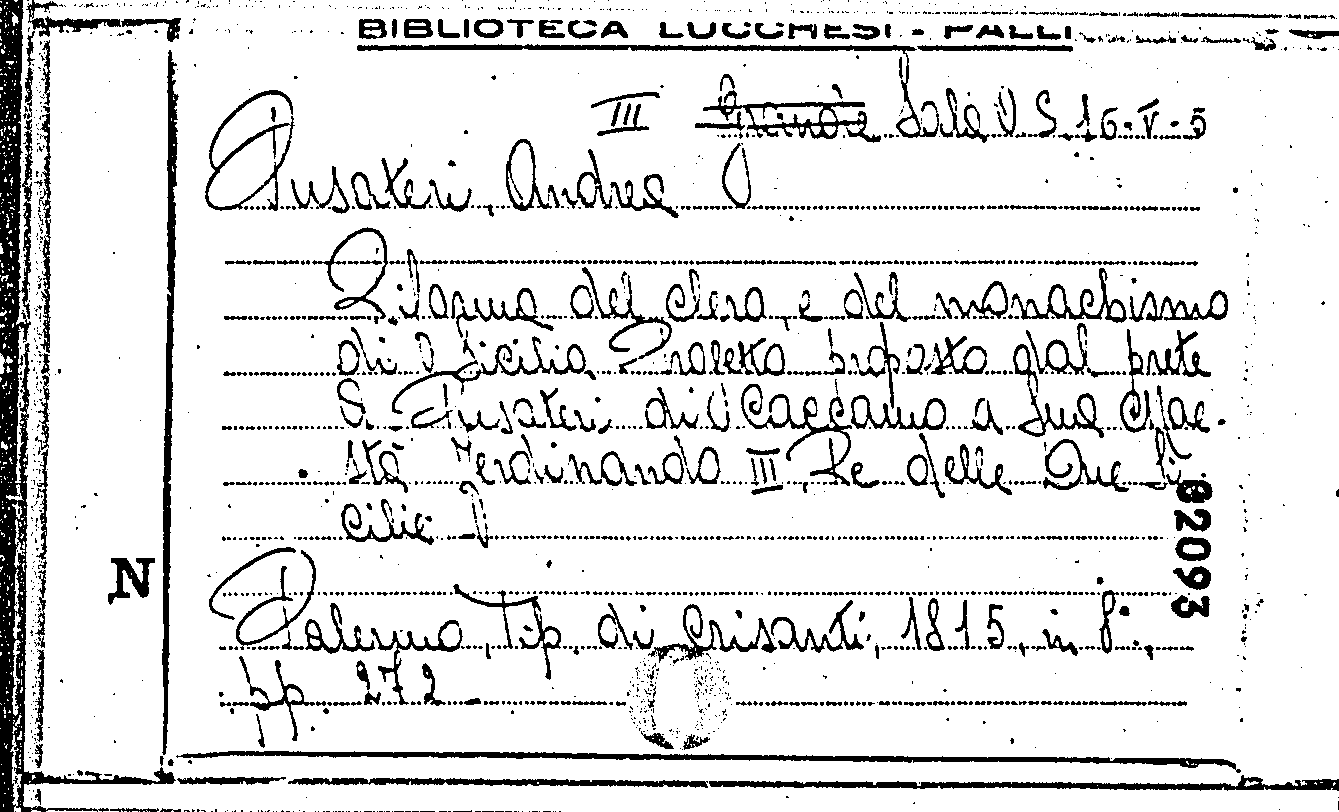 BIBLIOTECA LUCCHESI - PALLI
III Grande Sala S. 16-V-5
Pusateri, Andrea
Riforma del clero, e del monachismo
di Sicilia Progetto proposto dal prete
S. Pusateri di Caccamo a Sua Mae-
stà Ferdinando III, Re delle Due Si-
cilie
62093
N
Palermo, Tip. di Crisanti, 1815, in 8°.,
pp. 272